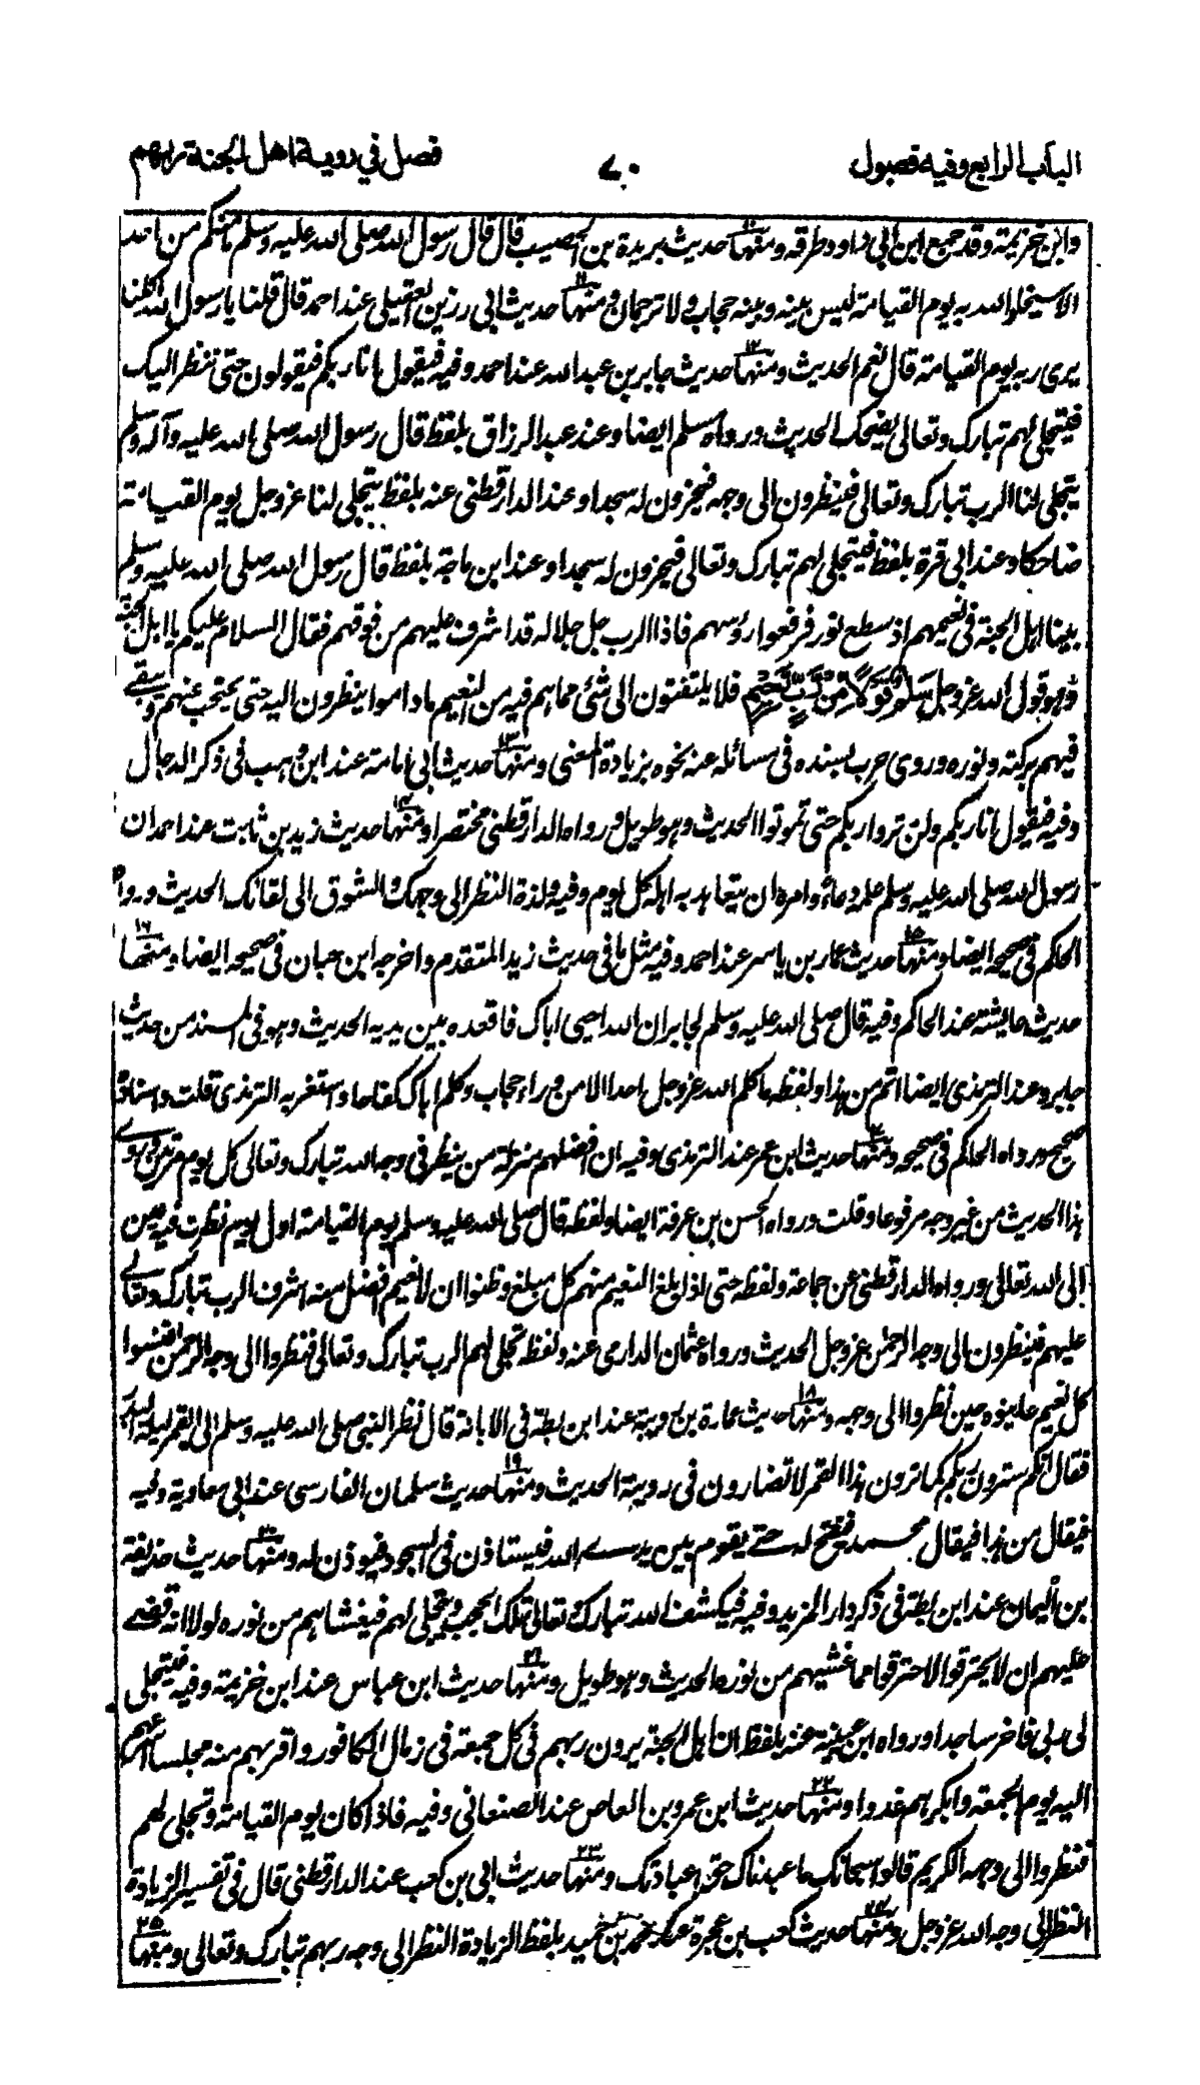 الباب الرابع وفيه فصول
٧٠
فصل في روية اهل الجنة ربهم
وابن خزيمة وقد جمع ابن ابي داود طرقه ومنها١٠ حديث بريدة بن الحصيب قال قال رسول الله صلى الله عليه وسلم ما منكم من احد
الا سيخلو الله به يوم القيامة ليس بينه وبينه حجاب ولا ترجمان ومنها١١ حديث ابي رزين العقيلي عند احمد قال قلنا يا رسول الله اكلنا
يرى ربه يوم القيامة قال نعم الحديث ومنها١٢ حديث جابر بن عبد الله عند احمد وفيه فيقول انا ربكم فيقولون حتى ننظر اليك
فيتجلى لهم تبارك وتعالى يضحك الحديث ورواه مسلم ايضا وعند عبد الرزاق بلفظ قال رسول الله صلى الله عليه وآله وسلم
يتجلى لنا الرب تبارك وتعالى فينظرون الى وجهه فيخرون له سجدا وعند الدارقطني عنه بلفظ يتجلى لنا عز وجل يوم القيامة
ضاحكا وعند ابي قرة بلفظ فيتجلى لهم تبارك وتعالى فيخرون له سجدا وعند ابن ماجة بلفظ قال رسول الله صلى الله عليه وسلم
بينا اهل الجنة في نعيمهم اذ سطع نور فرفعوا رؤسهم فاذا الرب جل جلاله قد اشرف عليهم من فوقهم فقال السلام عليكم يا اهل الجنة
وهو قول الله عز وجل سَلٰمٌ قَوْلًا مِّنْ رَّبٍّ رَّحِيْمٍ فلا يلتفتون الى شئ مما هم فيه من النعيم ما داموا ينظرون اليه حتى يحتجب عنهم ويبقى
فيهم بركته ونوره وروى حرب بسنده في مسائله عنه نحوه بزيادة المعنى ومنها١٣ حديث ابي امامة عند ابن وهب في ذكر الدجال
وفيه فيقول انا ربكم ولن تروا ربكم حتى تموتوا الحديث وهو طويل ورواه الدارقطني مختصرا ومنها١٤ حديث زيد بن ثابت عند احمد ان
رسول الله صلى الله عليه وسلم علمه دعاء وامره ان يتعاهد به اهله كل يوم وفيه ولذة النظر الى وجهك والشوق الى لقائك الحديث ورواه
الحاكم في صحيحه ايضا ومنها١٥ حديث عمار بن ياسر عند احمد وفيه مثل ما في حديث زيد المتقدم واخرجه ابن حبان في صحيحه ايضا ومنها١٦
حديث عايشة عند الحاكم وفيه قال صلى الله عليه وسلم لجابر ان الله احيى اباك فاقعده بين يديه الحديث وهو في المسند من حديث
جابر وعند الترمذي ايضا اتم من هذا ولفظه ما كلم الله عز وجل احدا الا من وراء حجاب وكلم اباك كفاحا واستغربه الترمذي قلت واسناده
صحيح ورواه الحاكم في صحيحه ومنها١٧ حديث ابن عمر عند الترمذي وفيه ان افضلهم منزلة من ينظر في وجه الله تبارك وتعالى كل يوم مرتين وروى
هذا الحديث من غير وجه مرفوعا وقلت ورواه الحسن بن عرفة ايضا ولفظه قال صلى الله عليه وسلم يوم القيامة اول يوم نظرت فيه عين
الى الله تعالى ورواه الدارقطني عن جماعة ولفظه حتى اذا بلغ النعيم منهم كل مبلغ وظنوا ان لا نعيم افضل منه اشرف الرب تبارك وتعالى
عليهم فينظرون الى وجه الرحمن عز وجل الحديث ورواه عثمان الدارمي عنه ولفظه تجلى لهم الرب تبارك وتعالى فنظروا الى وجه الرحمن فنسوا
كل نعيم عاينوه حين نظروا الى وجهه ومنها١٨ حديث عمارة بن رويبة عند ابن بطة في الابانة قال نظر النبي صلى الله عليه وسلم الى القمر ليلة البدر
فقال انكم سترون ربكم كما ترون هذا القمر لا تضارون في روية الحديث ومنها١٩ حديث سلمان الفارسي عند ابي معاوية وفيه
فيقال من هذا فيقال محمد فيفتح له حتى يقوم بين يدي الله فيستاذن في السجود فيوذن له ومنها٢٠ حديث حذيفة
بن اليمان عند ابن بطة في ذكر دار المزيد وفيه فيكشف الله تبارك وتعالى تلك الحجب ويتجلى لهم فيغشاهم من نوره لولا انه قضى
عليهم ان لا يحترقوا لاحترقوا مما غشيهم من نوره الحديث وهو طويل ومنها٢١ حديث ابن عباس عند ابن خزيمة وفيه فيتجلى
لي ربي فاخر ساجدا ورواه ابن عيينة عنه بلفظ ان اهل الجنة يرون ربهم في كل جمعة في رمال الكافور واقربهم منه مجلسا اسرعهم
اليه يوم الجمعة وابكرهم غدوا ومنها٢٢ حديث ابن عمرو بن العاص عند الصنعاني وفيه فاذا كان يوم القيامة وتجلى لهم
فنظروا الى وجهه الكريم قالوا سبحانك ما عبدناك حق عبادتك ومنها٢٣ حديث ابي بن كعب عند الدارقطني قال في تفسير الزيادة
النظر الى وجه الله عز وجل ومنها٢٤ حديث كعب بن عجرة عند محمد بن حميد بلفظ الزيادة النظر الى وجه ربهم تبارك وتعالى ومنها٢٥